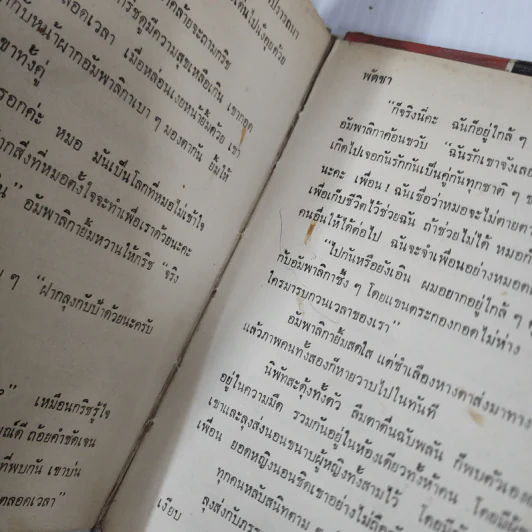 ปรารถนา
เดินไปเงียบด้วย
คล้ายจะถามกริช
กริชดูมีความสุขเหลือเกิน เขากอด
ตลอดเวลา เมื่อหล่อนเงยหน้ายิ้มด้วย เขา
กับหน้าผากอัมพาลิกาเบา ๆ มองตากัน ยิ้มให้
เขาทั้งคู่
รอกค่ะ หมอ มันเป็นโลกที่หมอไม่เข้าใจ
จากสิ่งที่หมอตั้งใจจะทำเพื่อเราด้วยนะคะ
อัมพาลิกายิ้มหวานให้กริช “จริง
ๆ “ฝากลุงกับป้าด้วยนะครับ
เหมือนกริชรู้ใจ
ถ้อยคำชัดเจน
ที่พบกัน เขาบ่น
ตลอดเวลา”
พัดชา
“ก็จริงนี่คะ ฉันก็อยู่ใกล้ ๆ
อัมพาลิกาค้อนขวับ “ฉันรักเขาจัง
เกิดไปเจอกันรักกันเป็นคู่กันทุกชาติ ๆ
นะคะ เพื่อน ! ฉันเชื่อว่าหมอจะไม่ตายตา
เพื่อเก็บชีวิตไว้ช่วยฉัน ถ้าช่วยไม่ได้ หมอก็
คนอื่นให้ได้ต่อไป ฉันจะจำเพื่อนอย่างหมอ
“ไปกันหรือยังเอิน ผมอยากอยู่ใกล้ ๆ
กับอัมพาลิกาซึ้ง ๆ โดยแขนตระกองกอดไม่ห่าง
ใครมารบกวนเวลาของเรา”
อัมพาลิกายิ้มสดใส แต่ชำเลืองหางตาส่งมาทาง
แล้วภาพคนทั้งสองก็หายวาบไปในทันที
นิพัทสะดุ้งทั้งตัว ลืมตาตื่นฉับพลัน ก็พบตัวเอง
อยู่ในความมืด รวมกันอยู่ในห้องเดียวทั้งห้าคน
เขาและลุงส่งนอนขนาบผู้หญิงทั้งสามไว้ โดย
เพื่อน ยอดหญิงนอนชิดเขาอย่างไม่
ทุกคนหลับสนิทตาม
เงียบ ลุงส่งกับ